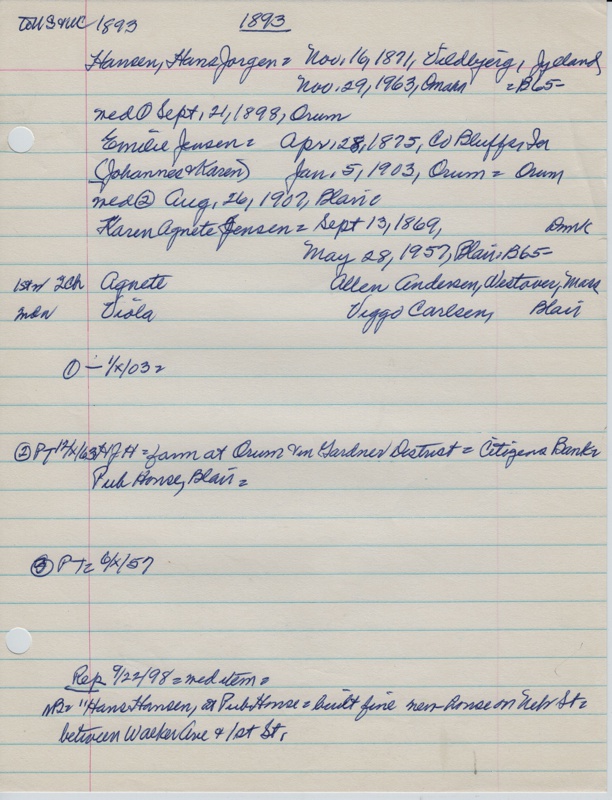 1893 1893
Hansen, Hans Jorgen = Nov. 16, 1871, Vildbjerg, Jylland
Nov. 29, 1963, Omaha = B65-
med ① Sept. 21, 1898, Orum
Emilie Jensen = Apr. 28, 1875, Co Bluffs, Ia
(Johannes & Karen) Jan. 5, 1903, Orum = Orum
med ② Aug. 26, 1907, Blair
Karen Agnete Jensen = Sept 13, 1869, Dmk
May 28, 1957, Blair = B65-
1st m 2ch Agnete Allen Andersen, Westover, Mass
Viola Viggo Carlsen, Blair
① - 1/x/03 =
② PT 12/x/63 HJH = farm at Orum & in Gardner District = Citizens Bank =
Pub House, Blair =
③ PT = 6/x/57
Rep 9/22/98 = med item =
NB = "Hans Hansen, at Pub House = built fine new house on Nebr St =
between Walker Ave & 1st St.